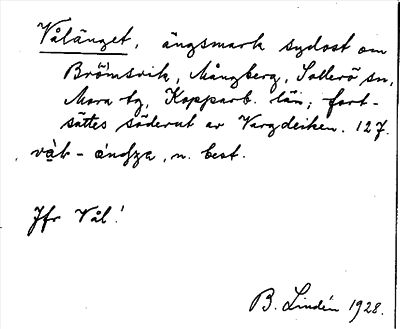 Vålänget, ängsmark sydost om
Brömsvik, Mångberg, Sollerö sn,
Mora tg, Kopparb. län; fort-
sättes söderut av Vargdeiken. 127.
n. best.
Jfr Vål!
B. Lindén 1928.